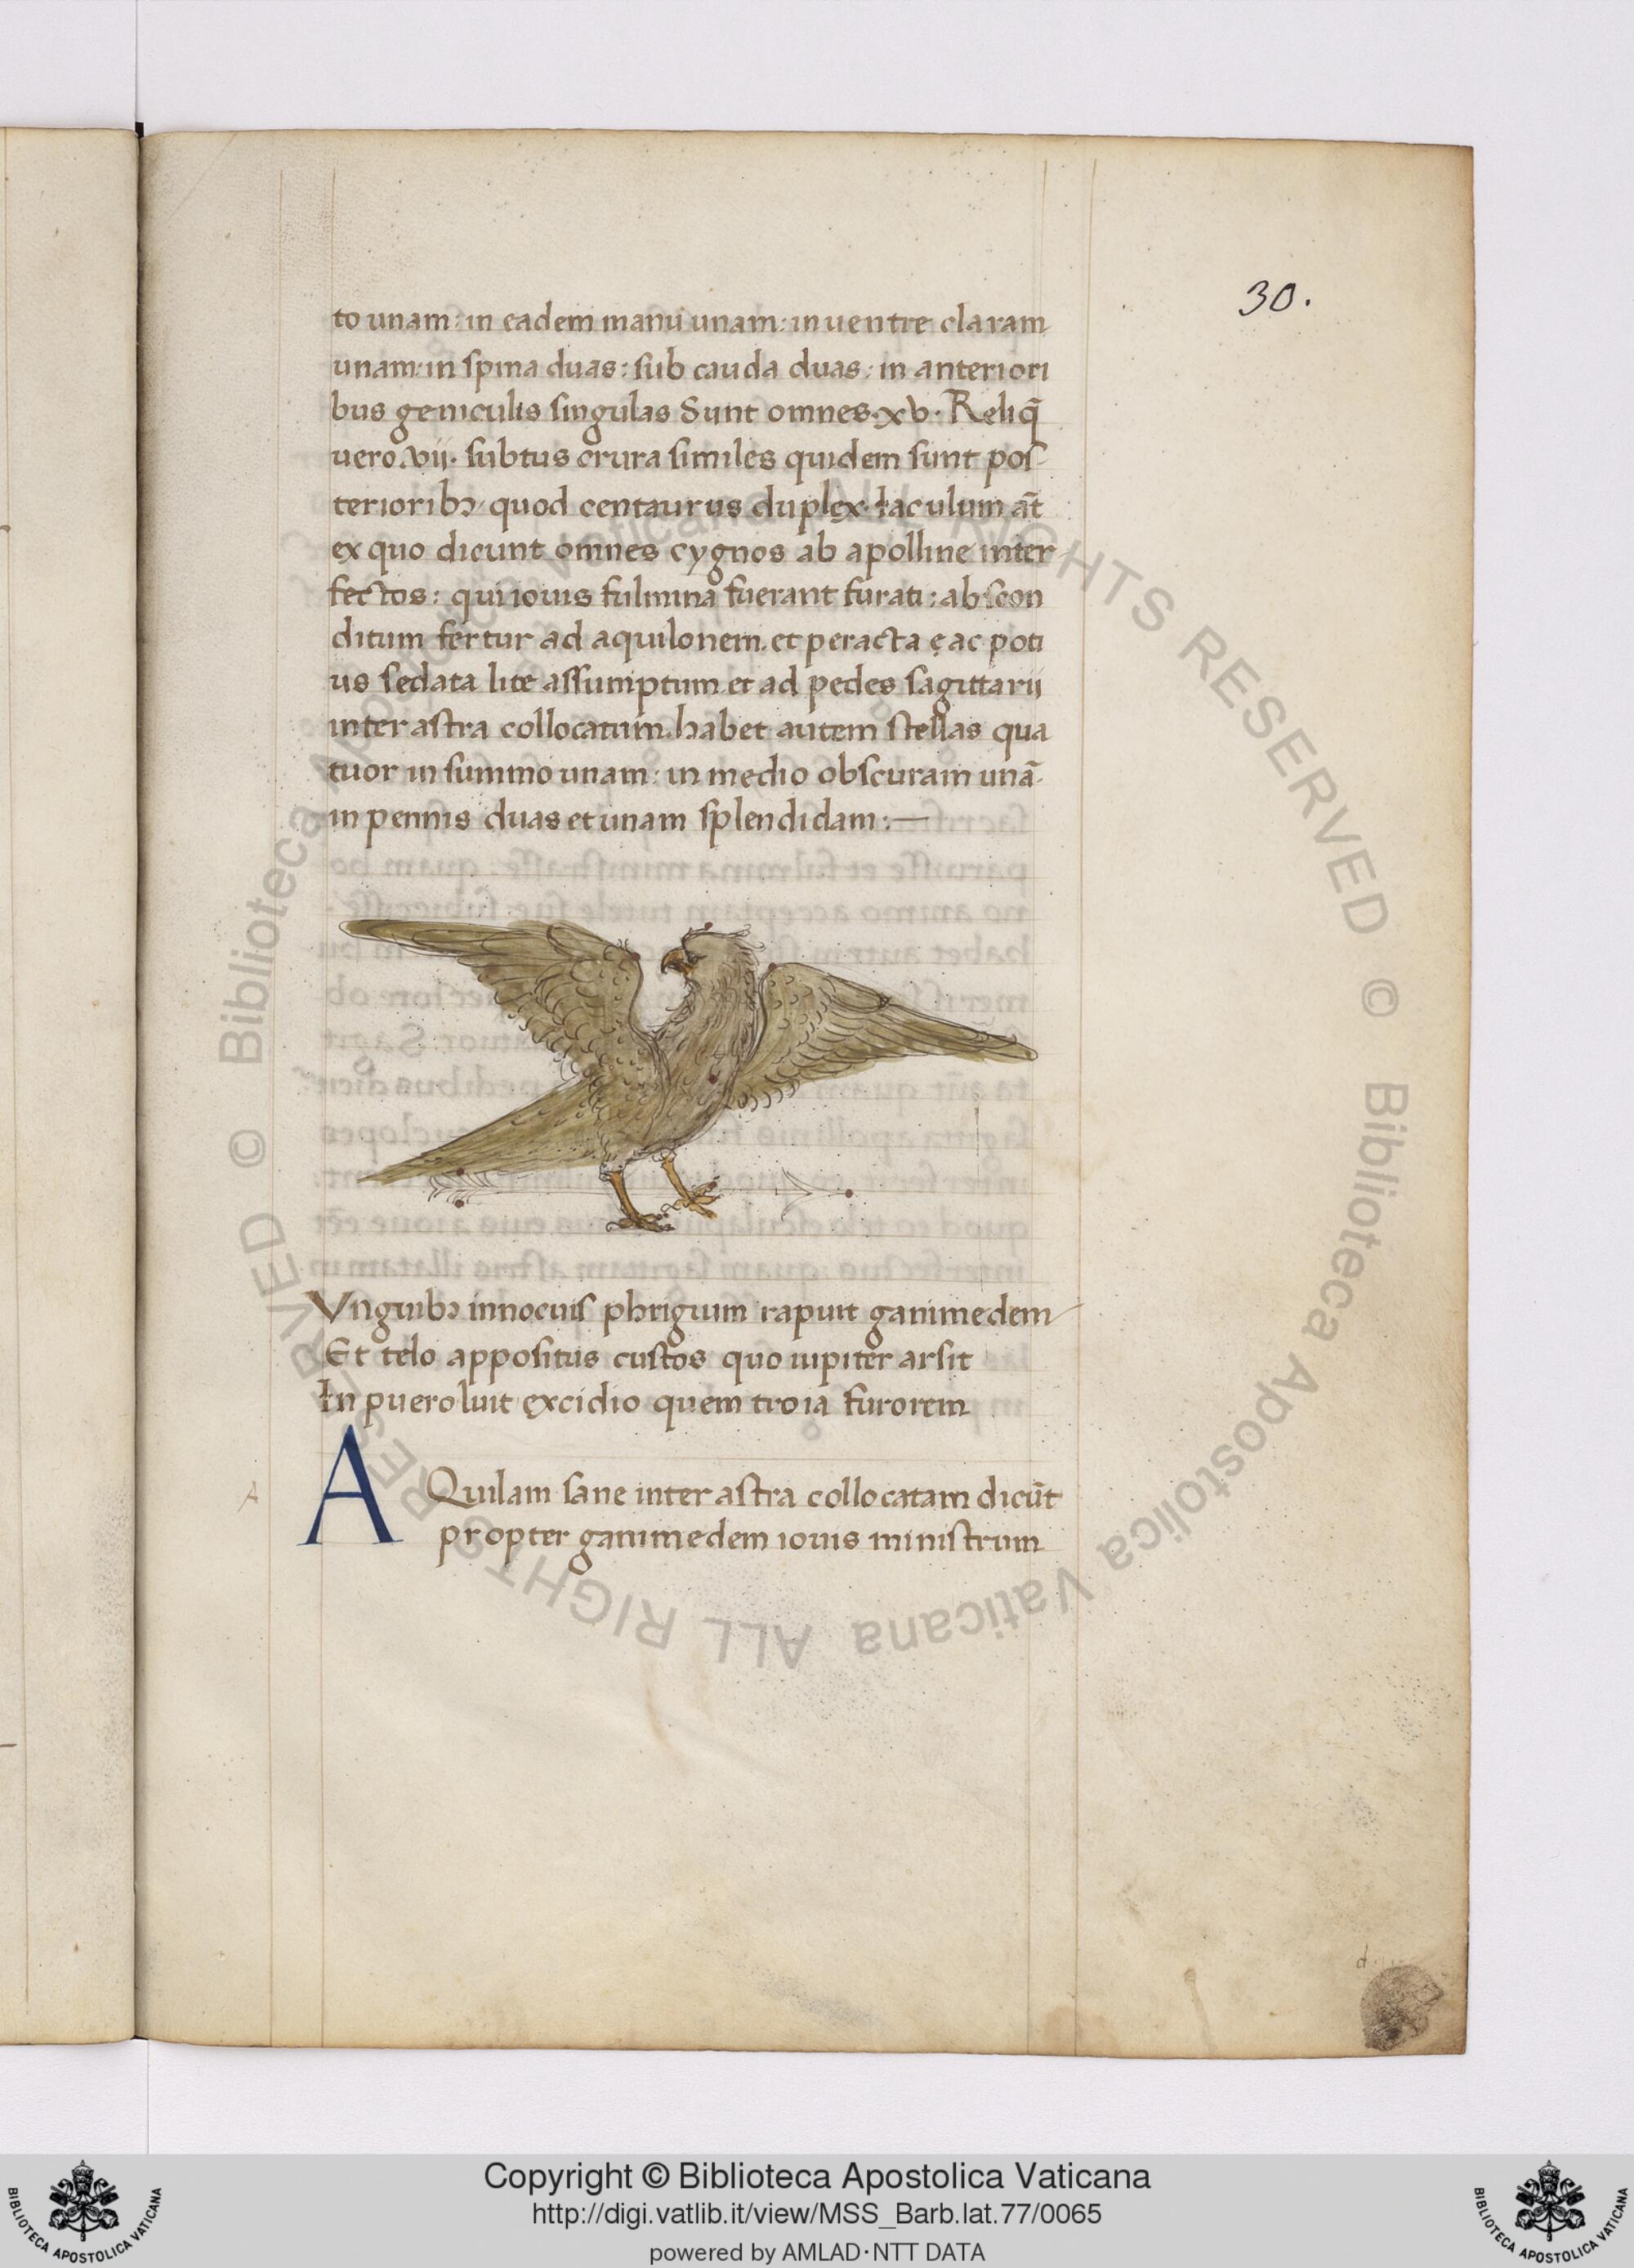 30.
to unam: in eadem manu unam: in uentre claram
unam: in spina duas: sub cauda duas: in anteriori
bus geniculis singulas Sunt omnes. xv. Reliq̄
uero. vii. subtus crura similes quidem sunt pos
terioribꝫ quod centaurus duplex. Iaculum at̄
ex quo dicunt omnes cygnos ab apolline inter
fectos: qui iouis fulmina fuerant furati: abscon
ditum fertur ad aquilonem. et peracta ę ac poti
us sedata lite assumptum. et ad pedes sagittarii
inter astra collocatum. habet autem stellas qua
tuor in summo unam: in medio obscuram unā
in pennis duas et unam splendidam:—
Vnguibꝫ innocuis phrigium rapuit ganimedem
Et telo appositus custos quo iupiter arsit
In puero luit excidio quem troia furorem
A
AQuilam sane inter astra collocatam dicūt
propter ganimedem iouis ministrum
d
© Biblioteca Apostolica Vaticana ALL RIGHTS RESERVED © Biblioteca Apostolica Vaticana ALL RIGHTS RESERVED
Copyright © Biblioteca Apostolica Vaticana
http://digi.vatlib.it/view/MSS_Barb.lat.77/0065
powered by AMLAD·NTT DATA
BIBLIOTECA APOSTOLICA VATICANA
BIBLIOTECA APOSTOLICA VATICANA